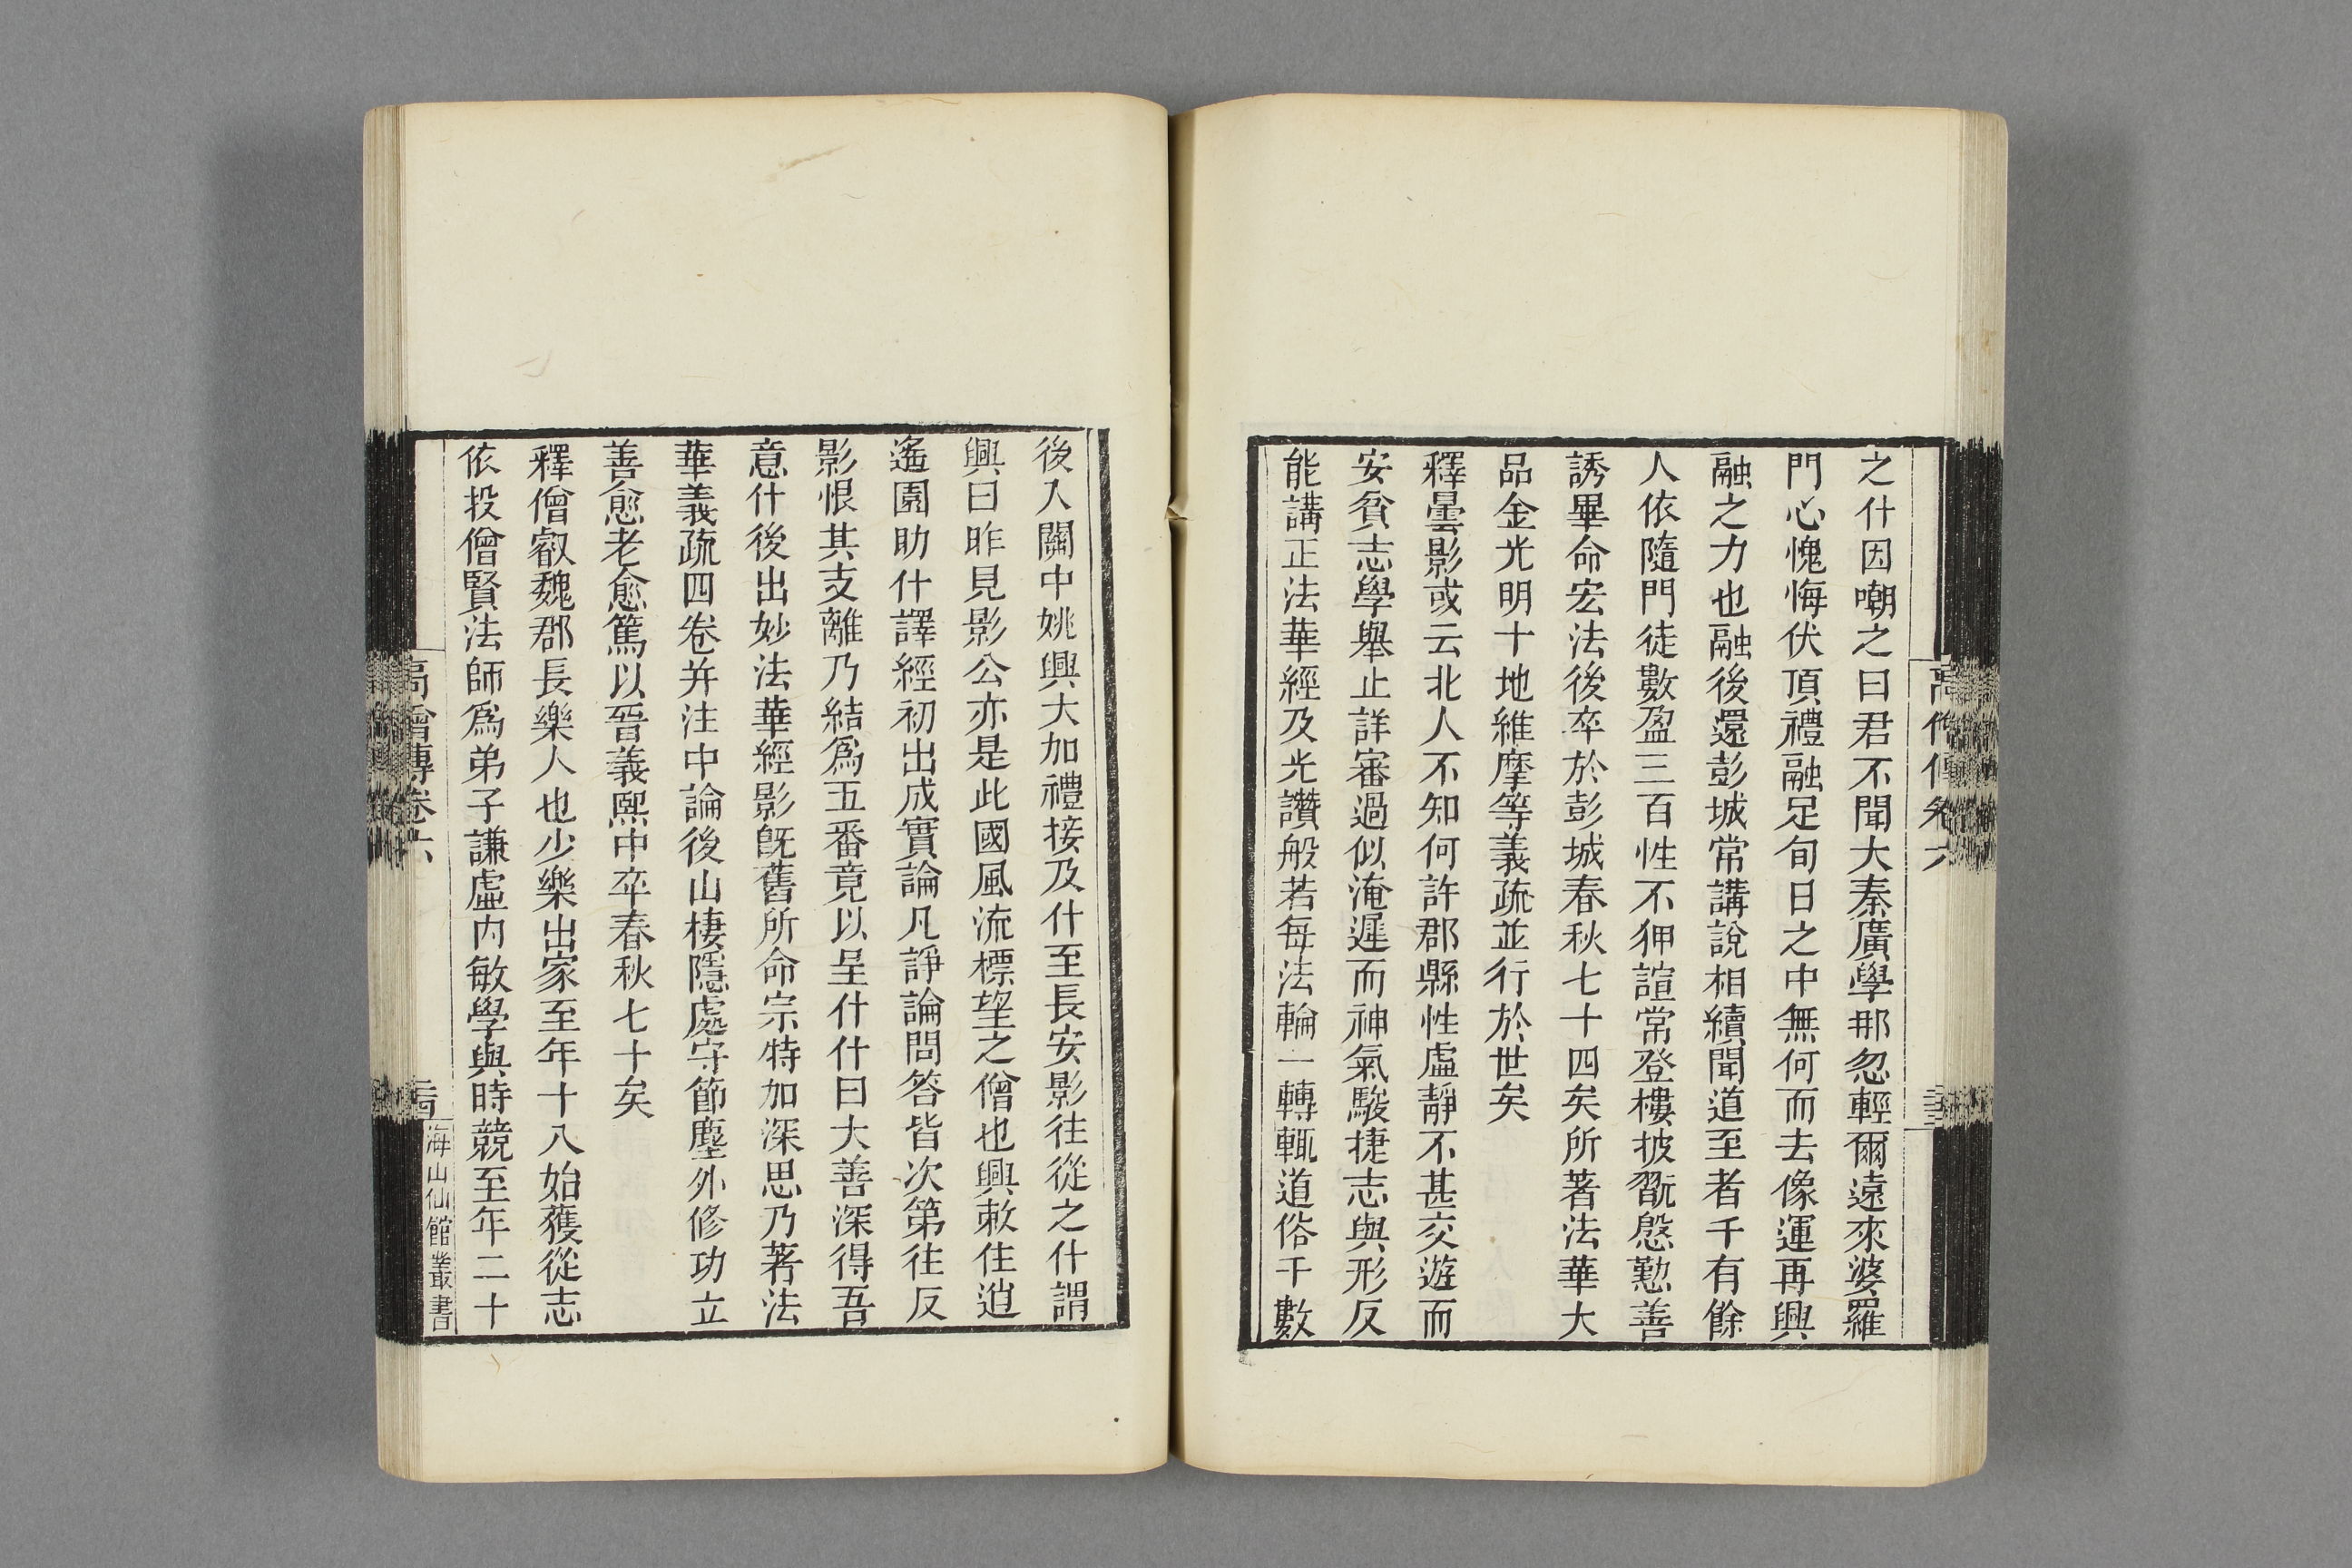 高僧傳卷六
之什因嘲之曰君不聞大秦廣學那忽輕爾遠來婆羅
門心愧悔伏頂禮融足旬日之中無何而去像運再興
融之力也融後還彭城常講說相續聞道至者千有餘
人依隨門徒數盈三百性不狎諠常登樓披翫慇懃善
誘畢命宏法後卒於彭城春秋七十四矣所著法華大
品金光明十地維摩等義疏並行於世矣
釋曇影或云北人不知何許郡縣性虛靜不甚交遊而
安貧志學舉止詳審過似淹遲而神氣駿捷志與形反
能講正法華經及光讚般若每法輪一轉輒道俗千數
後入關中姚興大加禮接及什至長安影往從之什謂
興曰昨見影公亦是此國風流標望之僧也興敕住逍
遙園助什譯經初出成實論凡諍論問答皆次第往反
影恨其支離乃結爲五番竟以呈什什曰大善深得吾
意什後出妙法華經影旣舊所命宗特加深思乃著法
華義疏四卷并注中論後山棲隱處守節塵外修功立
善愈老愈篤以晉義熙中卒春秋七十矣
釋僧叡魏郡長樂人也少樂出家至年十八始獲從志
依投僧賢法師爲弟子謙虛内敏學與時競至年二十
高僧傳卷六
海山仙館叢書